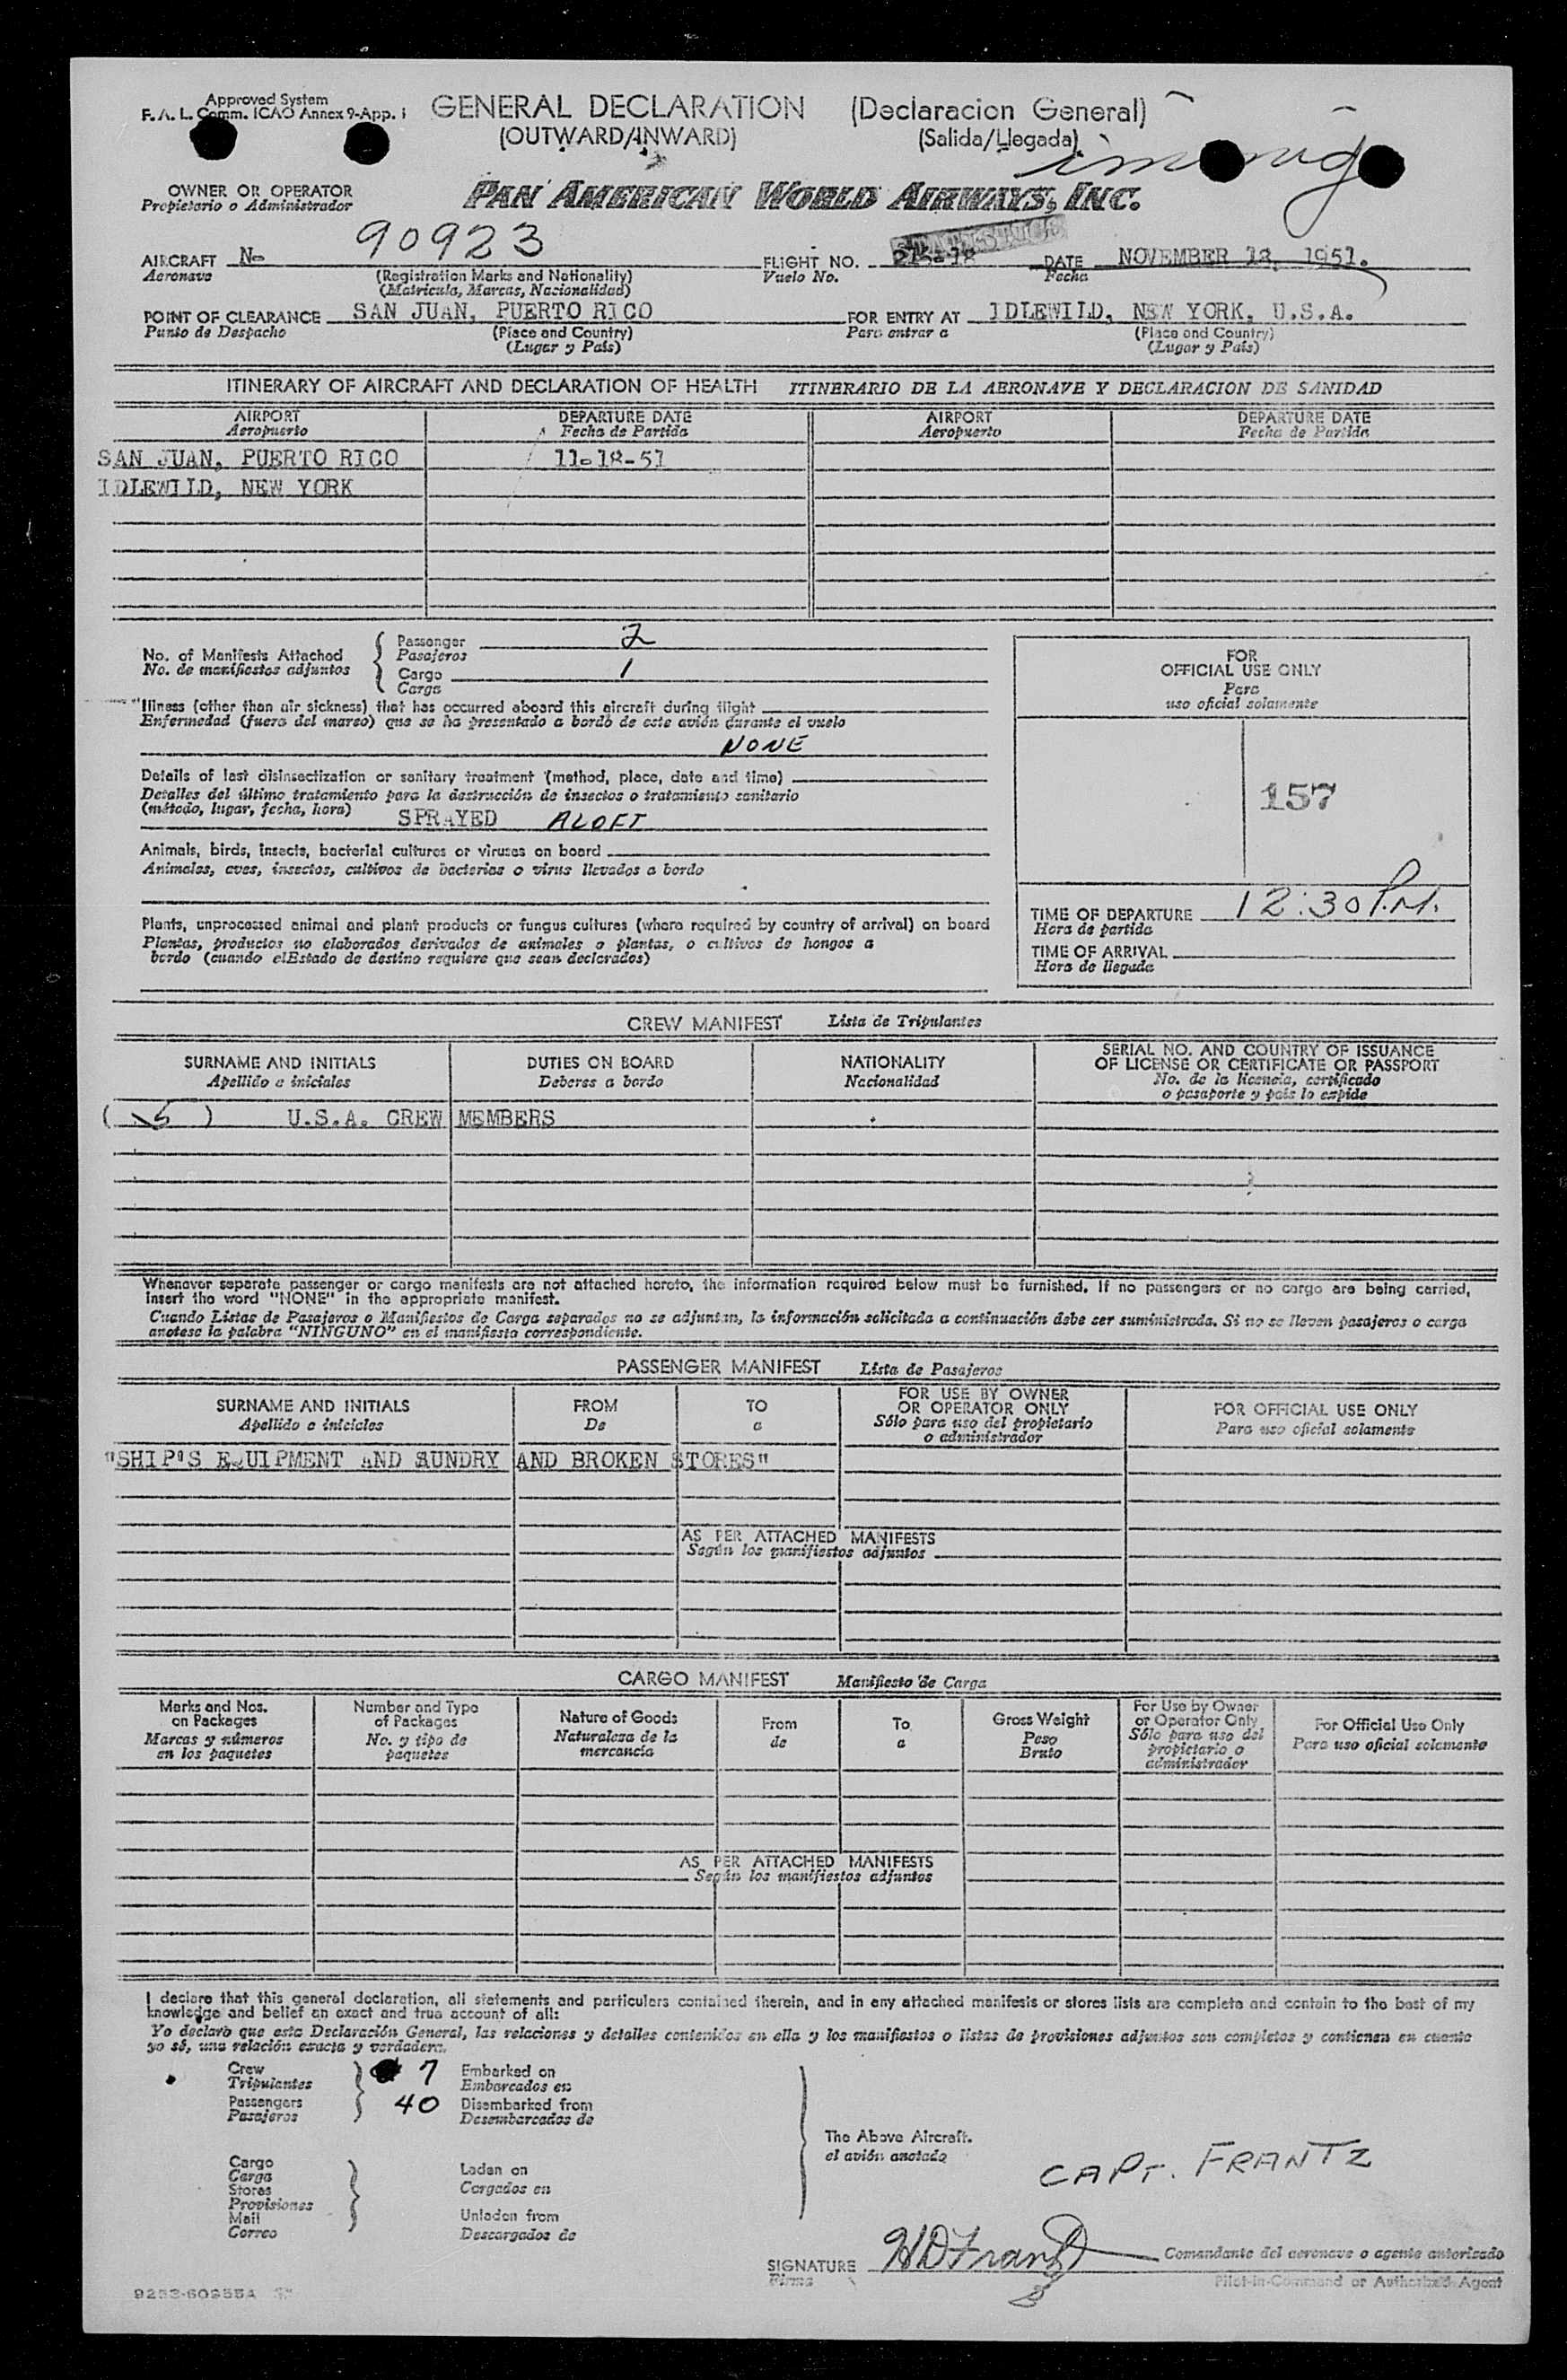 Approved System
F. A. L. Comm. ICAO Annex 9-App. 1
GENERAL DECLARATION (Declaracion General)
(OUTWARD/INWARD) (Salida/Llegada)
OWNER OR OPERATOR
Propietario o Administrador
PAN AMERICAN WORLD AIRWAYS, INC.
AIRCRAFT N- 90923 FLIGHT NO. DATE NOVEMBER 18, 1951.
Aeronave (Registration Marks and Nationality) Vuelo No. Fecha
(Matricula, Marcas, Nacionalidad)
POINT OF CLEARANCE SAN JUAN, PUERTO RICO FOR ENTRY AT IDLEWILD, NEW YORK, U.S.A.
Punto de Despacho (Place and Country) Para entrar a (Place and Country)
(Lugar y País) (Lugar y País)
ITINERARY OF AIRCRAFT AND DECLARATION OF HEALTH ITINERARIO DE LA AERONAVE Y DECLARACION DE SANIDAD
AIRPORT DEPARTURE DATE AIRPORT DEPARTURE DATE
Aeropuerto Fecha de Partida Aeropuerto Fecha de Partida
SAN JUAN, PUERTO RICO 11-18-51
IDLEWILD, NEW YORK
No. of Manifests Attached
No. de manifiestos adjuntos
Passenger 2
Pasajeros
Cargo 1
Carga
FOR
OFFICIAL USE ONLY
Para
uso oficial solamente
157
Illness (other than air sickness) that has occurred aboard this aircraft during flight
Enfermedad (fuera del mareo) que se ha presentado a bordo de este avión durante el vuelo
NONE
Details of last disinsectization or sanitary treatment (method, place, date and time)
Detalles del último tratamiento para la destrucción de insectos o tratamiento sanitario
(método, lugar, fecha, hora) SPRAYED ALOFT
Animals, birds, insects, bacterial cultures or viruses on board
Animales, aves, insectos, cultivos de bacterias o virus llevados a bordo
Plants, unprocessed animal and plant products or fungus cultures (where required by country of arrival) on board
Plantas, productos no elaborados derivados de animales o plantas, o cultivos de hongos a
bordo (cuando elEstado de destino requiere que sean declarados)
TIME OF DEPARTURE 12:30 P.M.
Hora de partida
TIME OF ARRIVAL
Hora de llegada
CREW MANIFEST Lista de Tripulantes
SURNAME AND INITIALS DUTIES ON BOARD NATIONALITY SERIAL NO. AND COUNTRY OF ISSUANCE
OF LICENSE OR CERTIFICATE OR PASSPORT
Apellido e iniciales Deberes a bordo Nacionalidad No. de la licencia, certificado
o pasaporte y país lo expide
( 5 ) U.S.A. CREW MEMBERS
Whenever separate passenger or cargo manifests are not attached hereto, the information required below must be furnished. If no passengers or no cargo are being carried,
insert the word "NONE" in the appropriate manifest.
Cuando Listas de Pasajeros o Manifiestos de Carga separados no se adjuntan, la información solicitada a continuación debe ser suministrada. Si no se llevan pasajeros o carga
anotese la palabra "NINGUNO" en el manifiesto correspondiente.
PASSENGER MANIFEST Lista de Pasajeros
SURNAME AND INITIALS FROM TO FOR USE BY OWNER
OR OPERATOR ONLY FOR OFFICIAL USE ONLY
Apellido e iniciales De a Sólo para uso del propietario
o administrador Para uso oficial solamente
"SHIP'S EQUIPMENT AND SUNDRY AND BROKEN STORES"
AS PER ATTACHED MANIFESTS
Según los manifiestos adjuntos
CARGO MANIFEST Manifiesto de Carga
Marks and Nos.
on Packages
Marcas y números
en los paquetes
Number and Type
of Packages
No. y tipo de
paquetes
Nature of Goods
Naturaleza de la
mercancía
From
de
To
a
Gross Weight
Peso
Bruto
For Use by Owner
or Operator Only
Sólo para uso del
propietario o
administrador
For Official Use Only
Para uso oficial solamente
AS PER ATTACHED MANIFESTS
Según los manifiestos adjuntos
I declare that this general declaration, all statements and particulars contained therein, and in any attached manifests or stores lists are complete and contain to the best of my
knowledge and belief an exact and true account of all:
Yo declaro que esta Declaración General, las relaciones y detalles contenidos en ella y los manifiestos o listas de provisiones adjuntos son completos y contienen en cuanto
yo sé, una relación exacta y verdadera.
Crew 7 Embarked on
Tripulantes Embarcados en
Passengers 40 Disembarked from
Pasajeros Desembarcados de
The Above Aircraft.
el avión anotado
Cargo
Carga
Stores
Provisiones
Mail
Correo
Laden on
Cargados en
Unladen from
Descargados de
CAPT. FRANTZ
SIGNATURE HDFrantz Comandante del aeronave o agente autorizado
Firma Pilot-in-Command or Authorized Agent